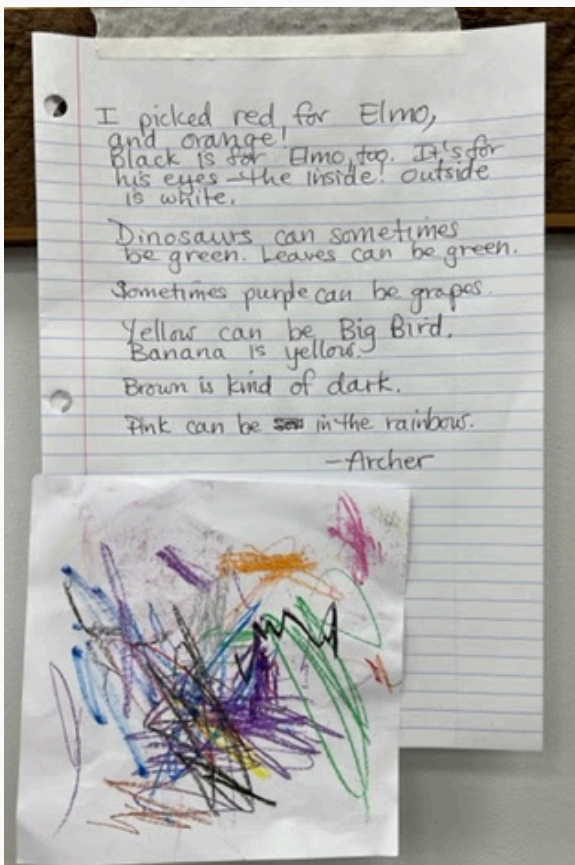 I picked red for Elmo,
and orange!
Black is for Elmo, too. It's for
his eyes - the inside! Outside
is white.
Dinosaurs can sometimes
be green. Leaves can be green.
Sometimes purple can be grapes.
Yellow can be Big Bird.
Banana is yellow.
Brown is kind of dark.
Pink can be in the rainbow.
-Archer